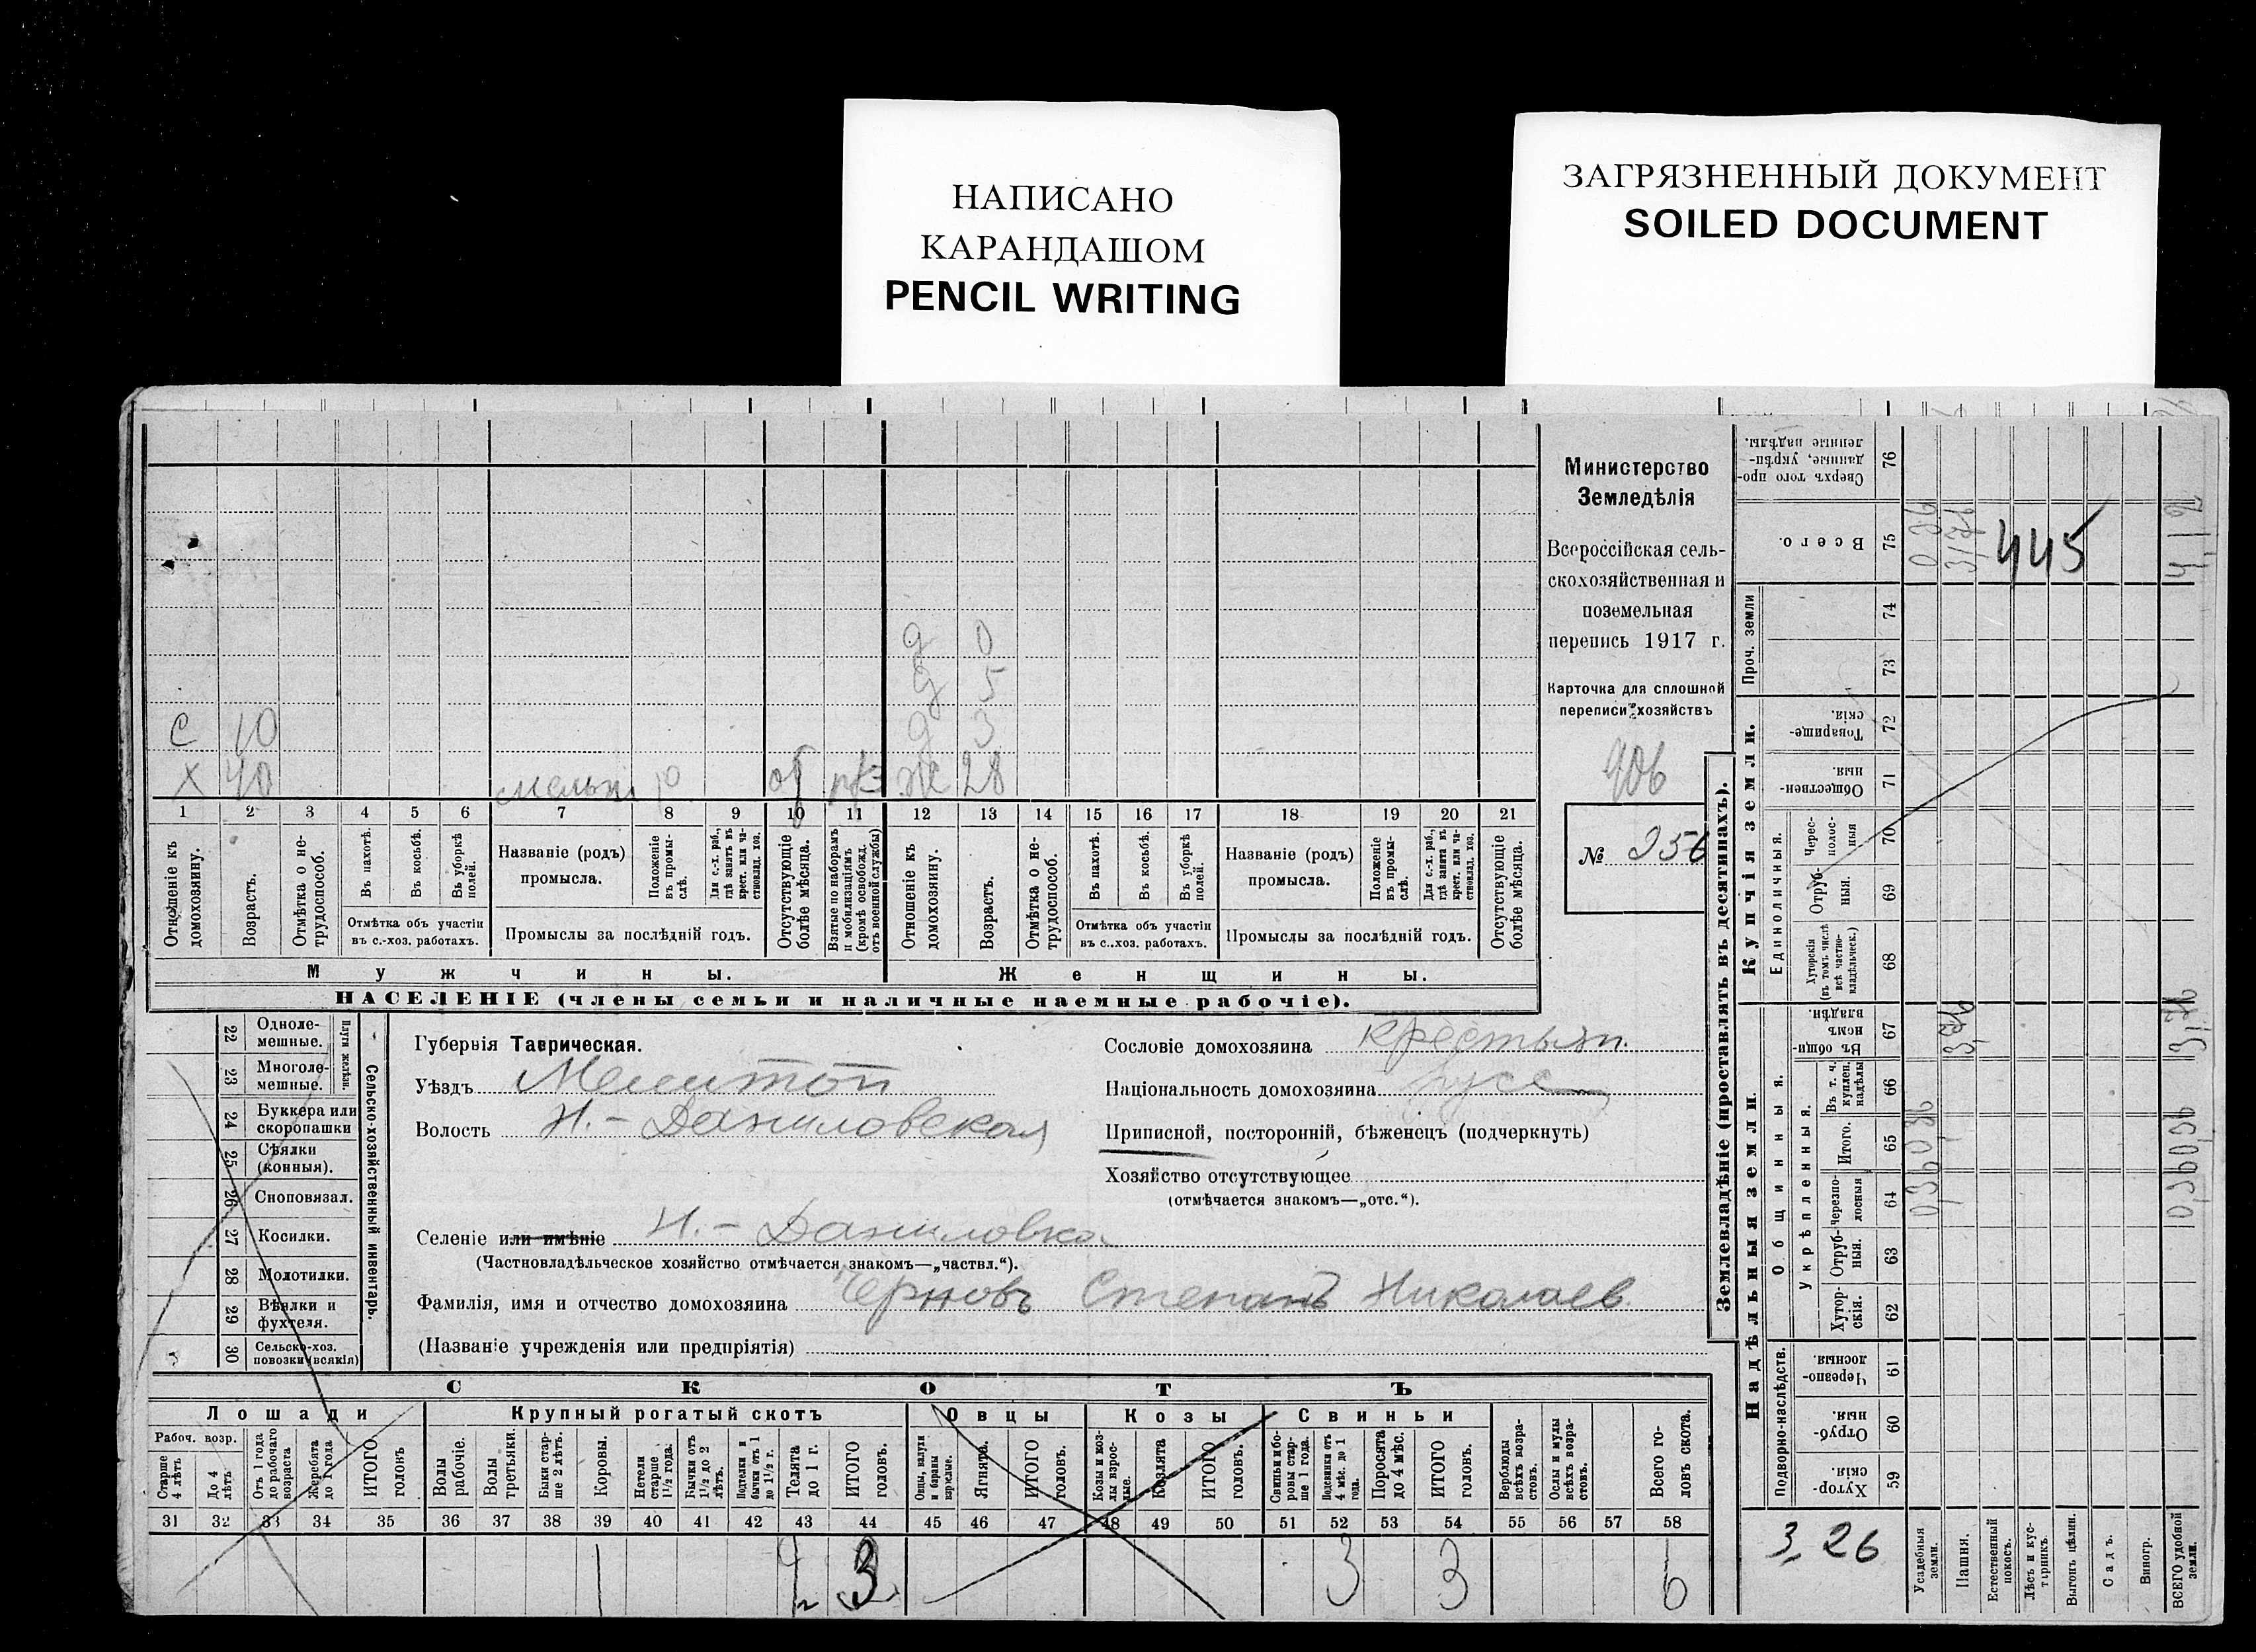 НАПИСАНО
КАРАНДАШОМ
PENCIL WRITING
ЗАГРЯЗНЕННЫЙ ДОКУМЕНТ
SOILED DOCUMENT
Министерство
Земледѣлія
Всероссійская сель-
скохозяйственная и
поземельная
перепись 1917 г.
Карточка для сплошной
переписи хозяйствъ
406
№ 256
д 0
д 5
с 10 д 3
х 40 об Ж 28
1 2 3 4 5 6 7 8 9 10 11 12 13 14 15 16 17 18 19 20 21
Отношеніе къ домохозяину.
Возрастъ.
Отмѣтка о не-трудоспособ.
Въ пахотѣ.
Въ косьбѣ.
Въ уборкѣ полей.
Отмѣтка объ участіи въ с.-хоз. работахъ.
Названіе (родъ) промысла.
Положеніе въ промы-слѣ.
Для с.-х. раб., гдѣ занятъ въ крест. или ча-ствовлад. хоз.
Промыслы за послѣдній годъ.
Отсутствующіе болѣе мѣсяца.
Взятые по наборамъ и мобилизаціямъ (кромѣ освобожд. отъ военной службы)
Отношеніе къ домохозяину.
Возрастъ.
Отмѣтка о не-трудоспособ.
Въ пахотѣ.
Въ косьбѣ.
Въ уборкѣ полей.
Отмѣтка объ участіи въ с.-хоз. работахъ.
Названіе (родъ) промысла.
Положеніе въ промы-слѣ.
Для с.-х. раб., гдѣ занята въ крест. или ча-ствовлад. хоз.
Промыслы за послѣдній годъ.
Отсутствующіе болѣе мѣсяца.
Мужчины. Женщины.
НАСЕЛЕНІЕ (члены семьи и наличные наемные рабочіе).
22 Одноле-мешные.
23 Многоле-мешные.
Плуги желѣзн.
24 Буккера или скоропашки
25 Сѣялки (конныя).
26 Сноповязал.
27 Косилки.
28 Молотилки.
29 Вѣялки и фухтеля.
30 Сельско-хоз. повозки (всякія)
Сельско-хозяйственный инвентарь.
Губернія Таврическая.
Уѣздъ Мелитоп
Волость Н.-Даниловская
Селеніе или имѣніе Н.-Даниловка
(Частновладѣльческое хозяйство отмѣчается знакомъ—„частвл.“).
Фамилія, имя и отчество домохозяина Черновъ Степанъ Николаев.
(Названіе учрежденія или предпріятія)
Сословіе домохозяина крестьян.
Національность домохозяина русс
Приписной, посторонній, бѣженецъ (подчеркнуть)
Хозяйство отсутствующее
(отмѣчается знакомъ—„отс.“).
СКОТЪ
Лошади Крупный рогатый скотъ Овцы Козы Свиньи
Рабоч. возр.
Старше 4 лѣтъ
До 4 лѣтъ
Отъ 1 года до рабочаго возраста
Жеребята до 1 года
ИТОГО головъ
Волы рабочіе.
Волы третьяки.
Быки стар-ше 2 лѣтъ.
Коровы.
Нетели старше 1½ года.
Бычки отъ 1½ до 2 лѣтъ.
Подтелки и бычки отъ 1 до 1½ г.
Телята до 1 г.
ИТОГО головъ.
Овцы, валухи и бараны взрослые.
Ягнята.
ИТОГО головъ.
Козы и коз-лы взрос-лые.
Козлята
ИТОГО головъ.
Свиньи и бо-ровы стар-ше 1 года.
Подсвинки отъ 4 мѣс. до 1 года.
Поросята до 4 мѣс.
ИТОГО головъ.
Верблюды всѣхъ возра-стовъ.
Ослы и мулы всѣхъ возра-стовъ.
Всего го-ловъ скота.
31 32 33 34 35 36 37 38 39 40 41 42 43 44 45 46 47 48 49 50 51 52 53 54 55 56 57 58
1 2 3 3 3 6
Землевладѣніе (проставлять въ десятинахъ).
Надѣльныя земли. Купчія земли.
Подворно-наслѣдств. Общинныя. Укрѣпленныя. Единоличныя. Проч. земли
59 Хутор-скія.
60 Отруб-ныя.
61 Черезпо-лосныя
62 Хутор-скія.
63 Отруб-ныя.
64 Черезпо-лосныя
65 Итого.
66 Въ т. ч. куплен. надѣлы
67 Въ общин-номъ владѣн.
68 Хуторскія (въ томъ числѣ всѣ частно-владѣльческ.)
69 Отруб-ныя.
70 Черес-полос-ныя
71 Обществен-ныя.
72 Товарище-скія.
73
74
75 Всего.
76 Сверхъ того про-данные, укрѣп-ленные надѣлы.
445
3,26
Усадебныя земли.
Пашня.
Естественный покосъ.
Лѣсъ и кус-тарникъ.
Выгонъ цѣлин.
Садъ.
Виногр.
ВСЕГО удобной земли.